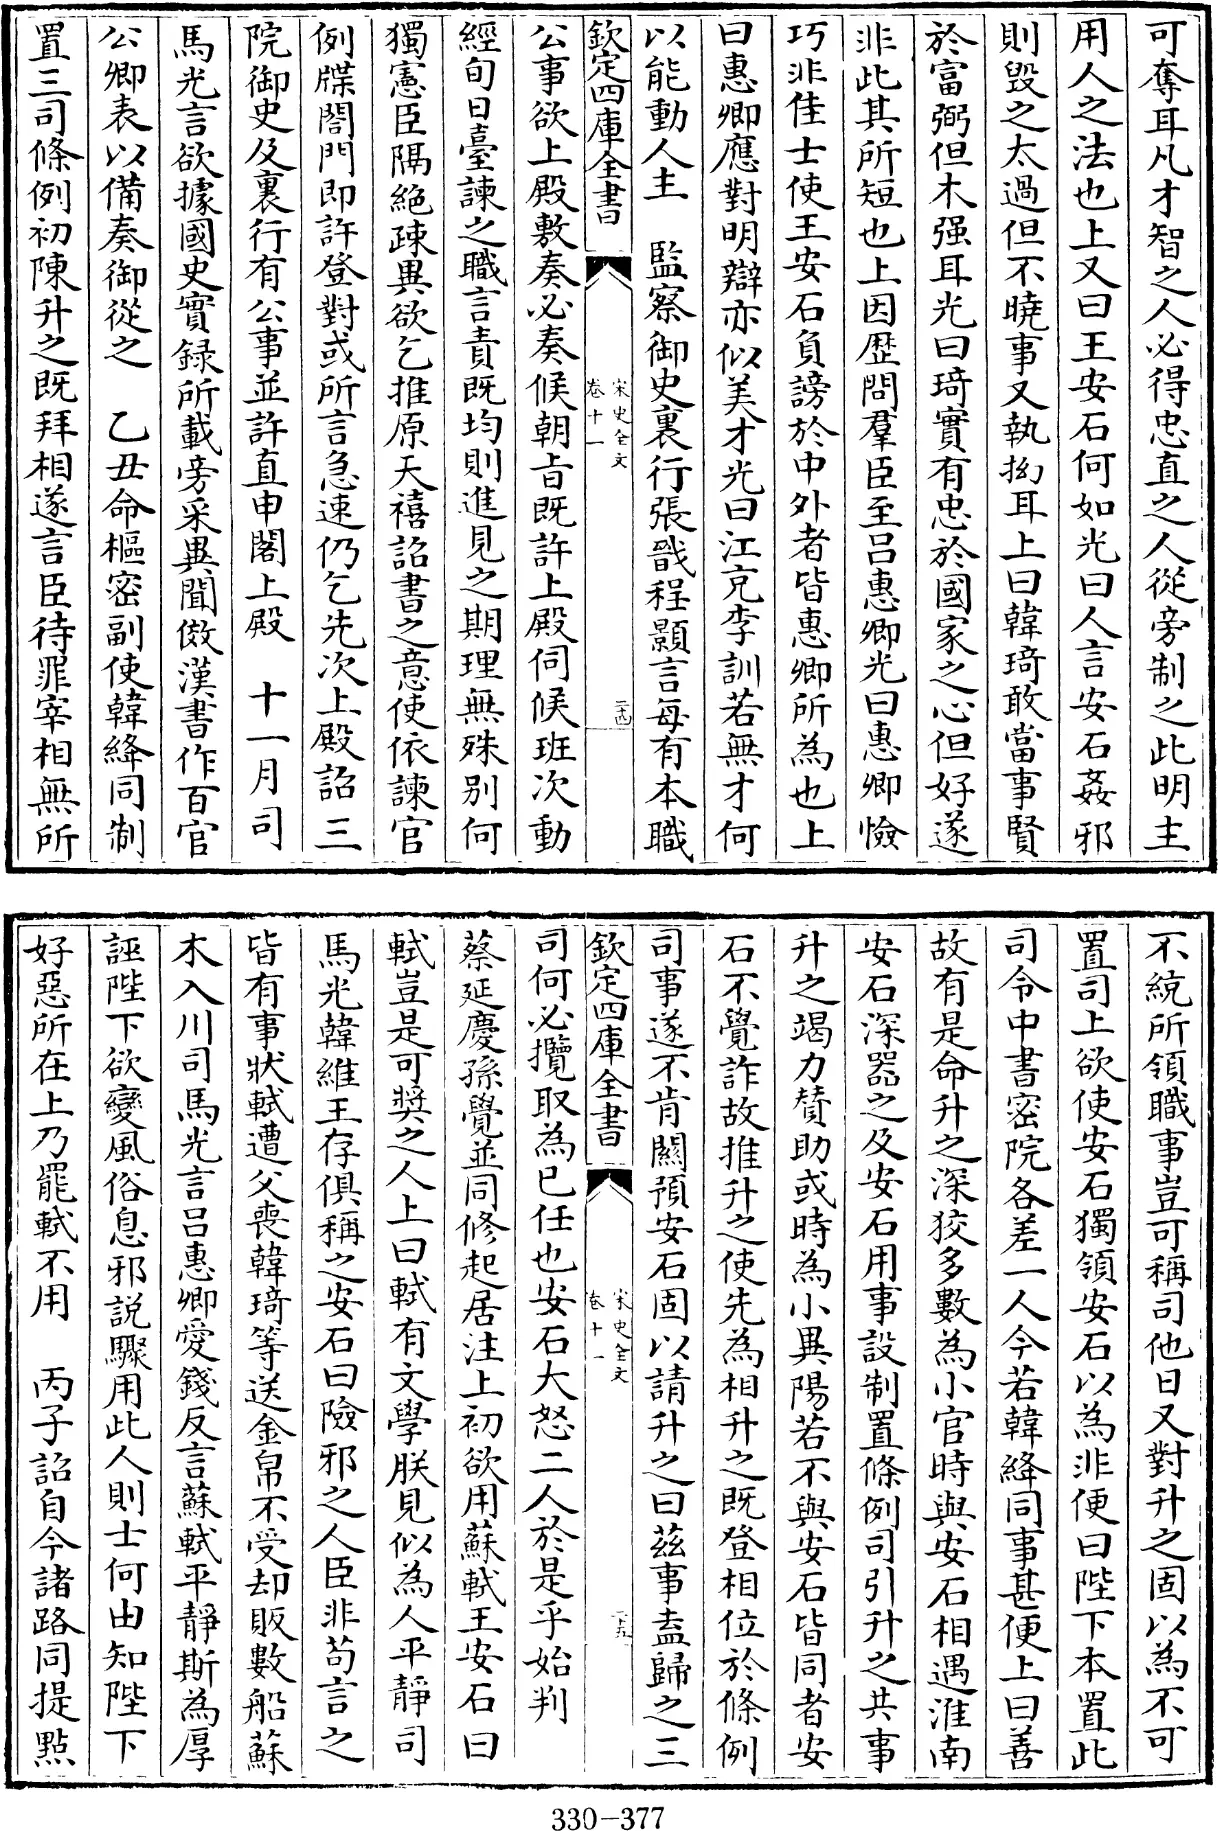 可奪耳凡才智之人必得忠直之人從旁制之此明主
用人之法也上又曰王安石何如光曰人言安石姦邪
則毀之太過但不曉事又執拗耳上曰韓琦敢當事賢
於富弼但木强耳光曰琦實有忠於國家之心但好遂
非此其所短也上因歴問羣臣至吕惠卿光曰惠卿憸
巧非佳士使王安石負謗於中外者皆惠卿所為也上
曰惠卿應對明辯亦似美才光曰江充李訓若無才何
以能動人主　監察御史裏行張戩程顥言每有本職
欽定四庫全書
宋史全文
卷十一
二十四
公事欲上殿敷奏必奏候朝旨既許上殿伺候班次動
經旬日臺諫之職言責既均則進見之期理無殊别何
獨憲臣隔絶疎異欲乞推原天禧詔書之意使依諫官
例牒閤門即許登對或所言急速仍乞先次上殿詔三
院御史及裏行有公事並許直申閤上殿　十一月司
馬光言欲據國史實録所載旁采異聞倣漢書作百官
公卿表以備奏御從之　乙丑命樞密副使韓絳同制
置三司條例初陳升之既拜相遂言臣待罪宰相無所
不統所領職事豈可稱司他日又對升之固以為不可
置司上欲使安石獨領安石以為非便曰陛下本置此
司令中書密院各差一人今若韓絳同事甚便上曰善
故有是命升之深狡多數為小官時與安石相遇淮南
安石深器之及安石用事設制置條例司引升之共事
升之竭力贊助或時為小異陽若不與安石皆同者安
石不覺詐故推升之使先為相升之既登相位於條例
司事遂不肯關預安石固以請升之曰兹事盍歸之三
欽定四庫全書
宋史全文
卷十一
二十五
司何必攬取為已任也安石大怒二人於是乎始判
蔡延慶孫覺並同修起居注上初欲用蘇軾王安石曰
軾豈是可奬之人上曰軾有文學朕見似為人平靜司
馬光韓維王存俱稱之安石曰險邪之人臣非苟言之
皆有事狀軾遭父喪韓琦等送金帛不受却販數船蘇
木入川司馬光言吕惠卿愛錢反言蘇軾平靜斯為厚
誣陛下欲變風俗息邪説驟用此人則士何由知陛下
好惡所在上乃罷軾不用　丙子詔自今諸路同提㸃
330-377